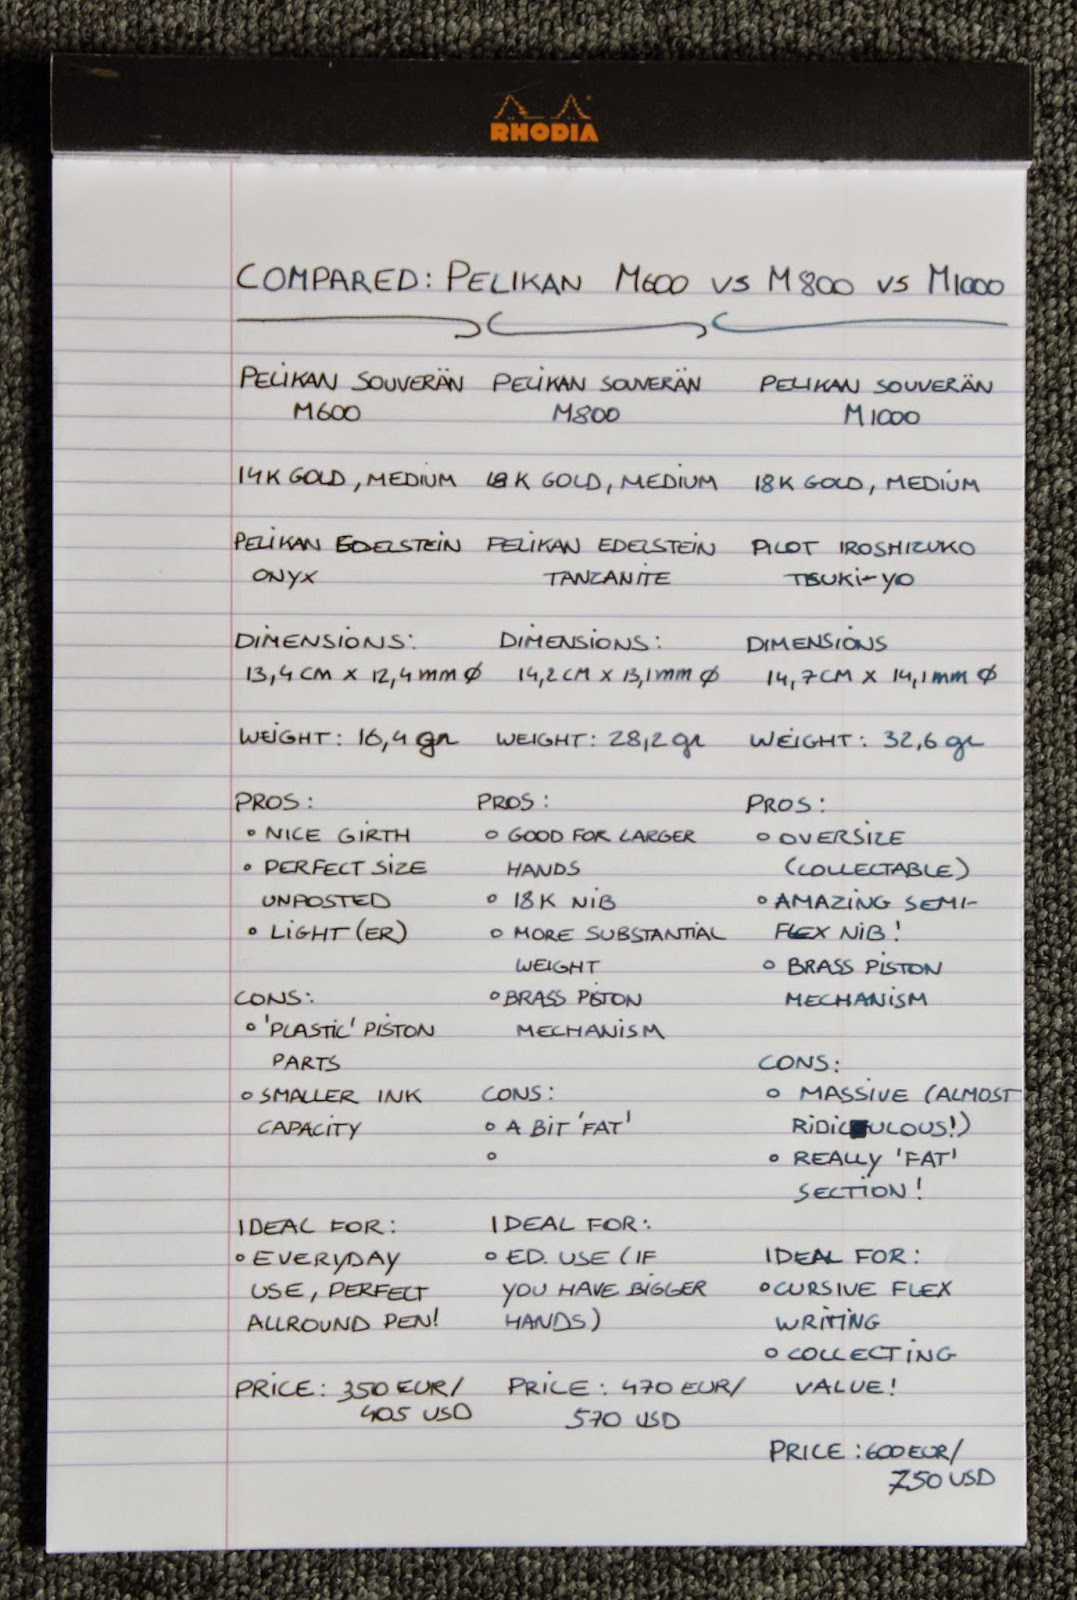 RHODIA
COMPARED: PELIKAN M600 VS M800 VS M1000
PELIKAN SOUVERÄN
M600
14K GOLD, MEDIUM
PELIKAN EDELSTEIN
ONYX
DIMENSIONS:
13,4 CM X 12,4 mm Ø
WEIGHT: 16,4 gr
PROS:
° NICE GIRTH
° PERFECT SIZE
UNPOSTED
° LIGHT(ER)
CONS:
° 'PLASTIC' PISTON
PARTS
° SMALLER INK
CAPACITY
IDEAL FOR:
° EVERYDAY
USE, PERFECT
ALLROUND PEN!
PRICE: 350 EUR/
405 USD
PELIKAN SOUVERÄN
M800
18K GOLD, MEDIUM
PELIKAN EDELSTEIN
TANZANITE
DIMENSIONS:
14,2 CM X 13,1 mm Ø
WEIGHT: 28,2 gr
PROS:
° GOOD FOR LARGER
HANDS
° 18K NIB
° MORE SUBSTANTIAL
WEIGHT
° BRASS PISTON
MECHANISM
CONS:
° A BIT 'FAT'
°
IDEAL FOR:
° ED. USE (IF
YOU HAVE BIGGER
HANDS)
PRICE: 470 EUR/
570 USD
PELIKAN SOUVERÄN
M1000
18K GOLD, MEDIUM
PILOT IROSHIZUKO
TSUKI-YO
DIMENSIONS
14,7 CM X 14,1 mm Ø
WEIGHT: 32,6 gr
PROS:
° OVERSIZE
(COLLECTABLE)
° AMAZING SEMI-
FLEX NIB!
° BRASS PISTON
MECHANISM
CONS:
° MASSIVE (ALMOST
RIDICULOUS!)
° REALLY 'FAT'
SECTION!
IDEAL FOR:
° CURSIVE FLEX
WRITING
° COLLECTING
VALUE!
PRICE: 600 EUR/
750 USD